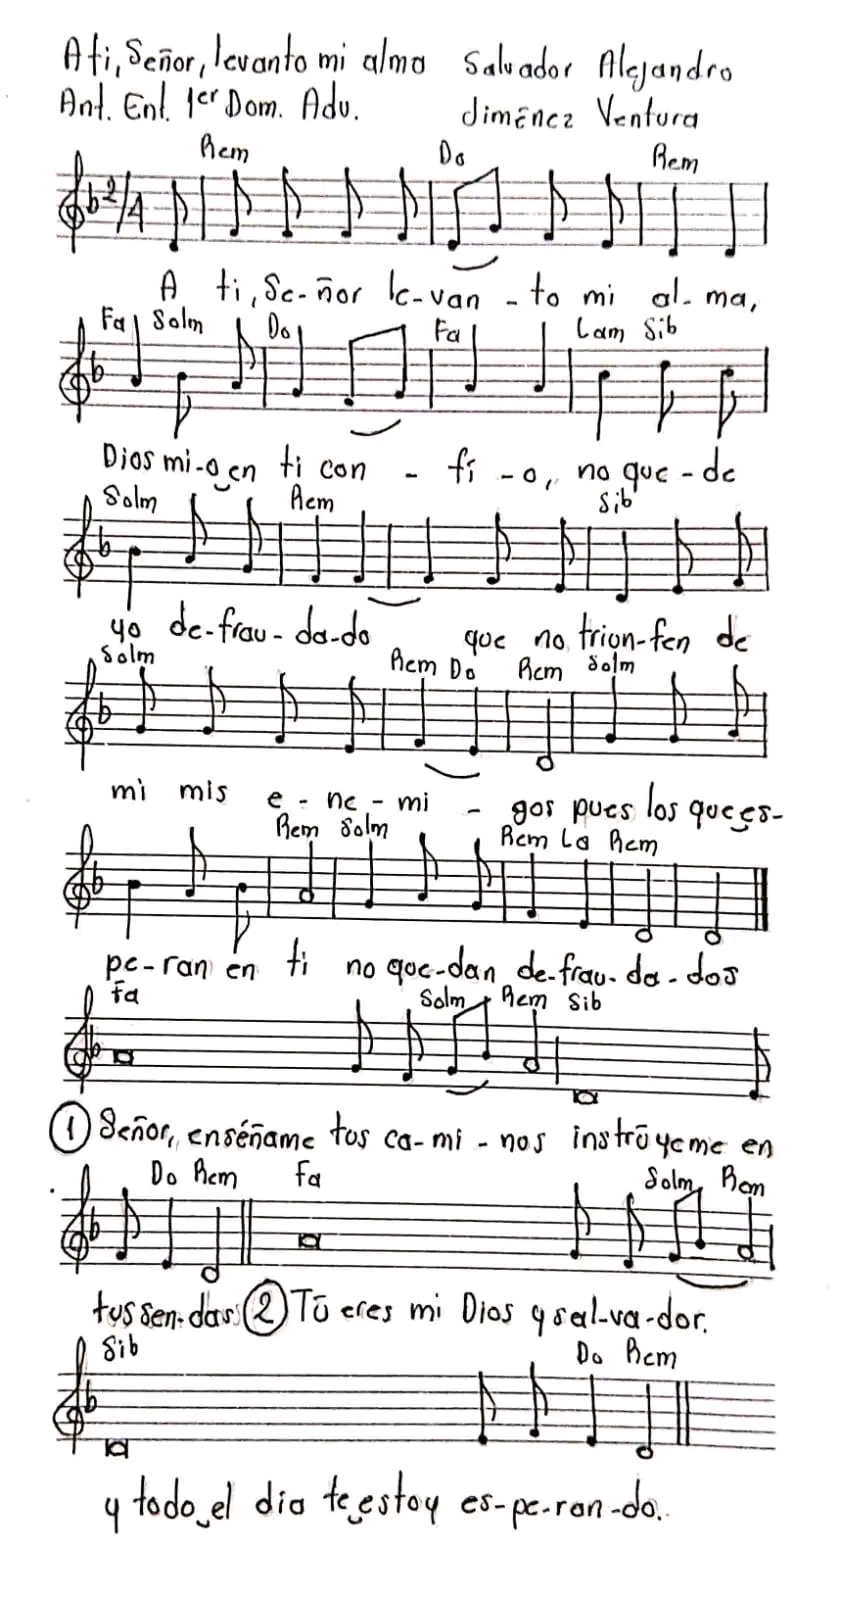 A ti, Señor, levanto mi alma Salvador Alejandro
Ant. Ent. 1er Dom. Adv. Jiménez Ventura
Rem Do Rem
2/4
A ti, Se-ñor le-van-to mi al-ma,
Fa Solm Do Fa Lam Sib
Dios mi-o en ti con - fí -o, no que-de
Solm Rem Sib
yo de-frau-da-do que no trion-fen de
Solm Rem Do Rem Solm
mi mis e-ne-mi - gos pues los que es-
Rem Solm Rem La Rem
pe-ran en ti no que-dan de-frau-da-dos
Fa Solm Rem Sib
1 Señor, enséñame tus ca-mi-nos instrúyeme en
Do Rem Fa Solm Rem
tus sen-das 2 Tú eres mi Dios y sal-va-dor.
Sib Do Rem
y todo el dia te estoy es-pe-ran-do.